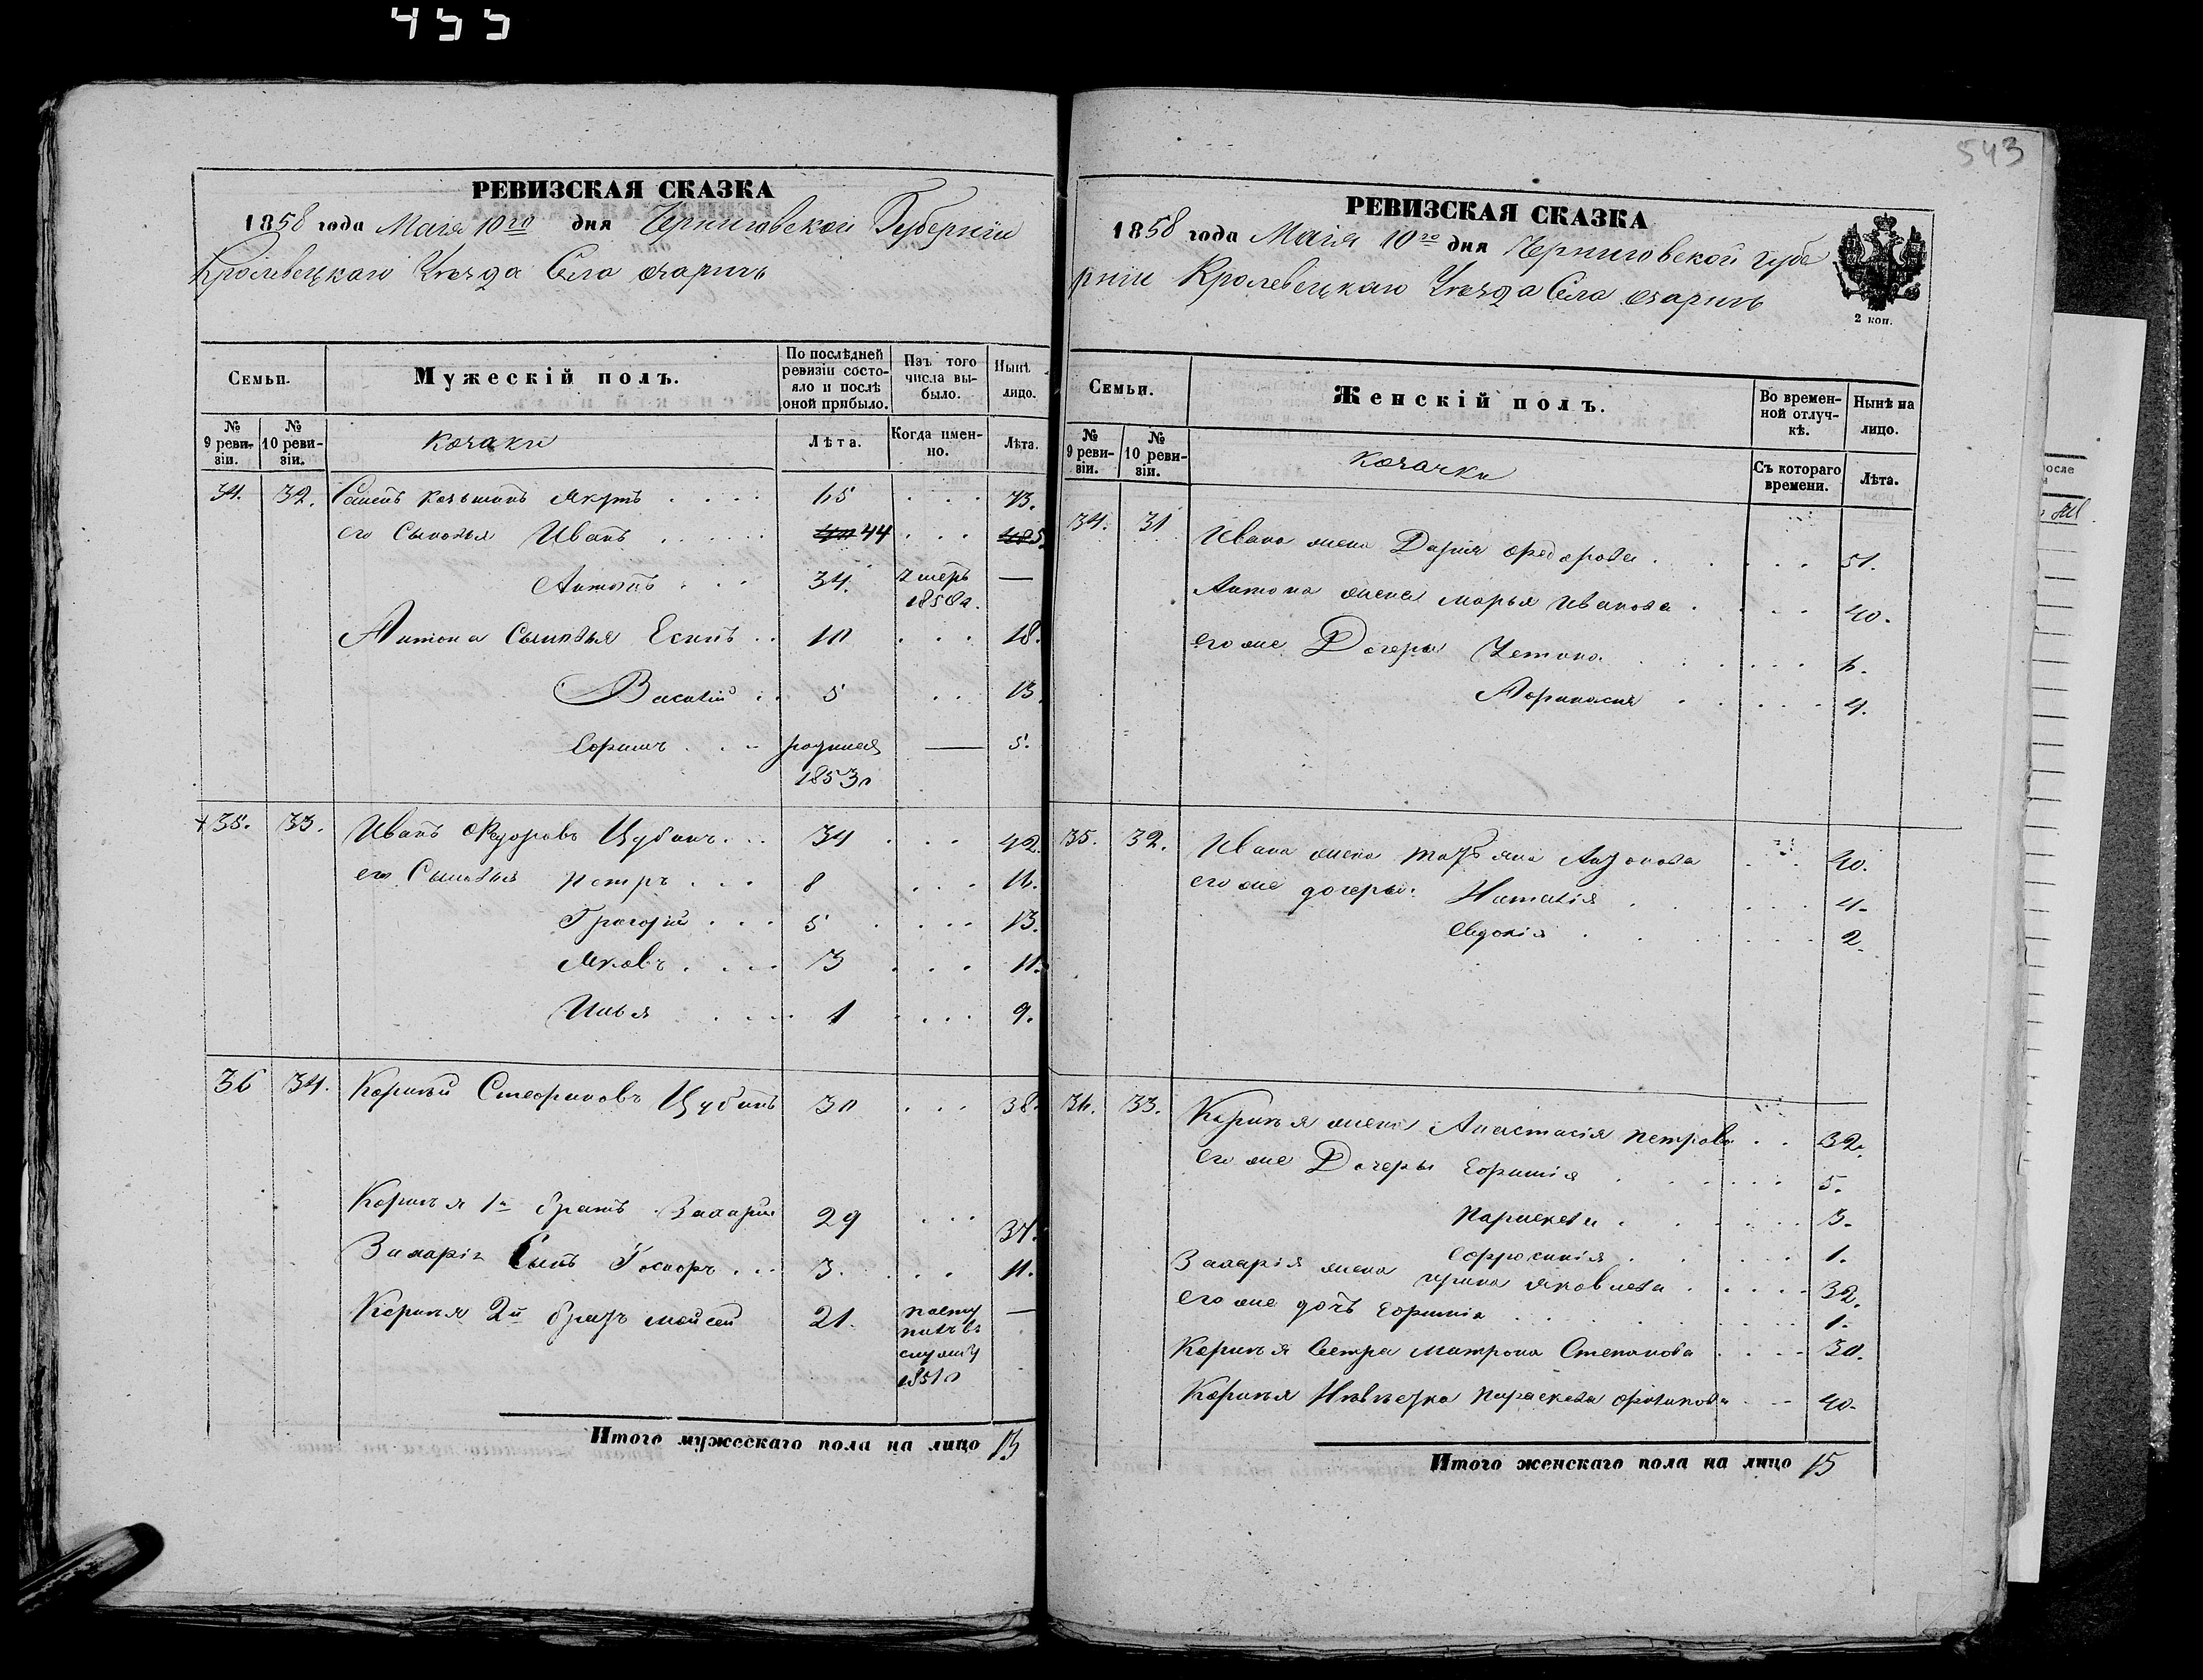 455
543
РЕВИЗСКАЯ СКАЗКА
1858 года Маія 10го дня Черниговской Губерніи
Кролевецкаго Уезда Села
Семьи.
Мужескій полъ.
По послѣдней ревизіи состояло и послѣ оной прибыло.
Изъ того числа выбыло.
Нынѣ лицо.
№ 9 ревизіи.
№ 10 ревизіи.
козаки
Лѣта.
Когда именно.
Лѣта.
34. 32. 65 . . . 73.
его Сыновья Иванъ . . . . . 44 . . .
Антонъ . . . 34. умеръ 1850г. —
Антона Сыновья Есипъ . . 10 . . . 18.
Василій . . 5 . . 13.
Ефимъ . . . родился 1853г — 5.
35. 33. Иванъ Федоровъ Цубанъ . . . 34 . . . 42.
его Сыновья Петръ . . . 8 . . . 16.
Григорій . . . 5 . . . 13.
Яковъ . . . 3 . . . 11.
Илья . . . 1 . . . 9.
36 34. Корнѣй Стефановъ Цубанъ 30 . . . 38.
Корнѣя 1й братъ Захарій 29 . . . 37.
Захарія Сынъ . . . 3. . . . 11.
Корнѣя 2й братъ Мойсей 21. поступилъ въ службу 1851г —
Итого мужескаго пола на лицо 13
РЕВИЗСКАЯ СКАЗКА
1858 года Маія 10го дня Черниговской Губе
рніи Кролевецкаго Уезда Села
2 коп.
Семьи.
Женскій полъ.
Во временной отлучкѣ.
Нынѣ на лицо.
№ 9 ревизіи.
№ 10 ревизіи.
козачки
Съ котораго времени.
Лѣта.
34. 31 Ивана жена Дарія Федорова . . . . . 51.
Антона жена Марья Иванова . . . . 40.
его же Дочери Устина . . . . . . 6.
Афанасія . . . . . 4.
35. 32. Ивана жена Татьяна . . . 40.
его же дочеры Наталія . . . . . 4.
Евдокія . . . . . . 2.
36. 33. Корнѣя жена Анастасія Петрова . . 32.
его же Дочеры Ефимія . . . . . . 5.
Параскева . . . . . . 3.
Ефросинія . . . . . 1.
Захарія жена Ирина Яковлева . . . . . 32.
его же дочь Ефимія . . . . . . . . 1.
Корнѣя Сестра Матрона Степанова . . . . 30.
Корнѣя Невѣстка Параскева . . . 40.
Итого женскаго пола на лицо 15